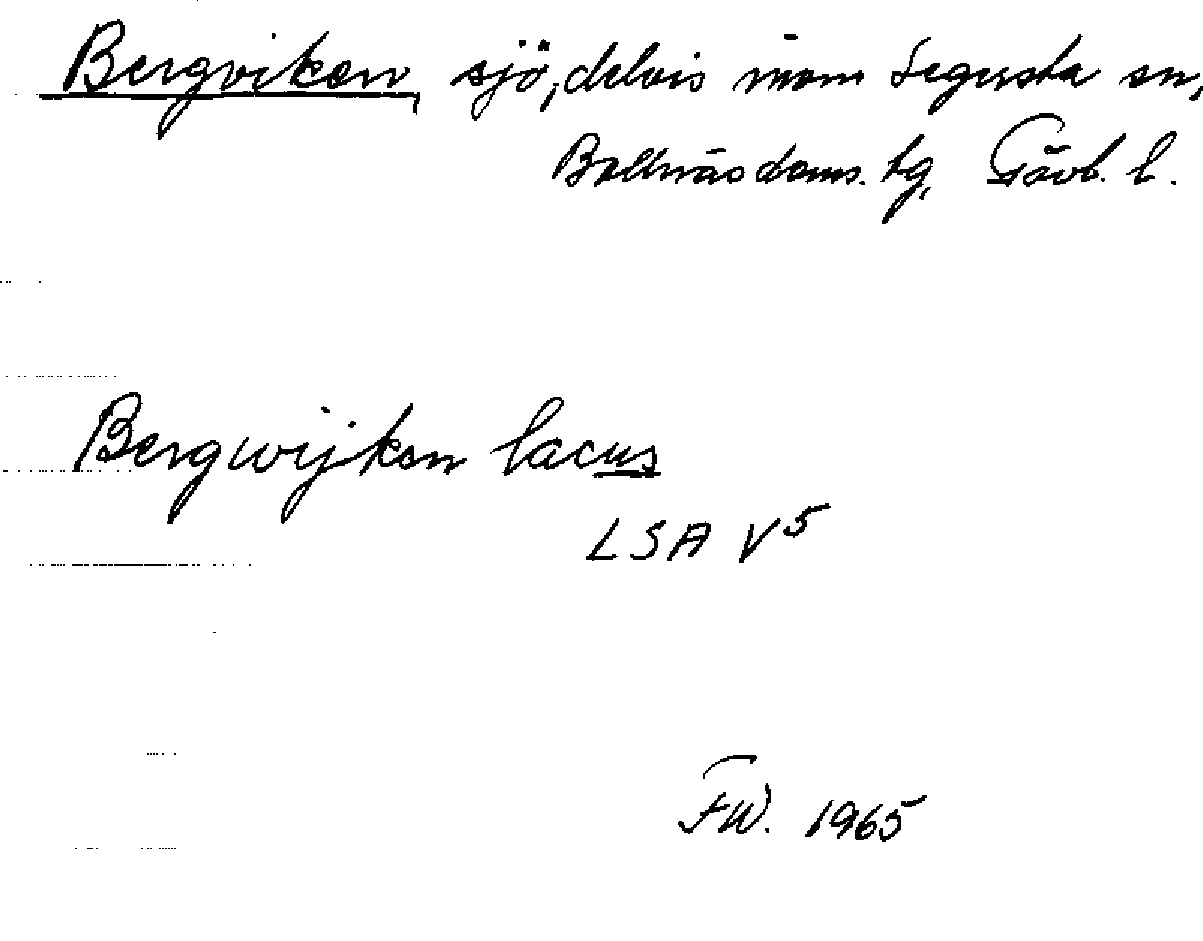 Bergviken, sjö, delvis inom Segersta sn,
Bollnäs doms. tg, Gävl. l.
Bergwijken lacus
LSA V5
FW. 1965